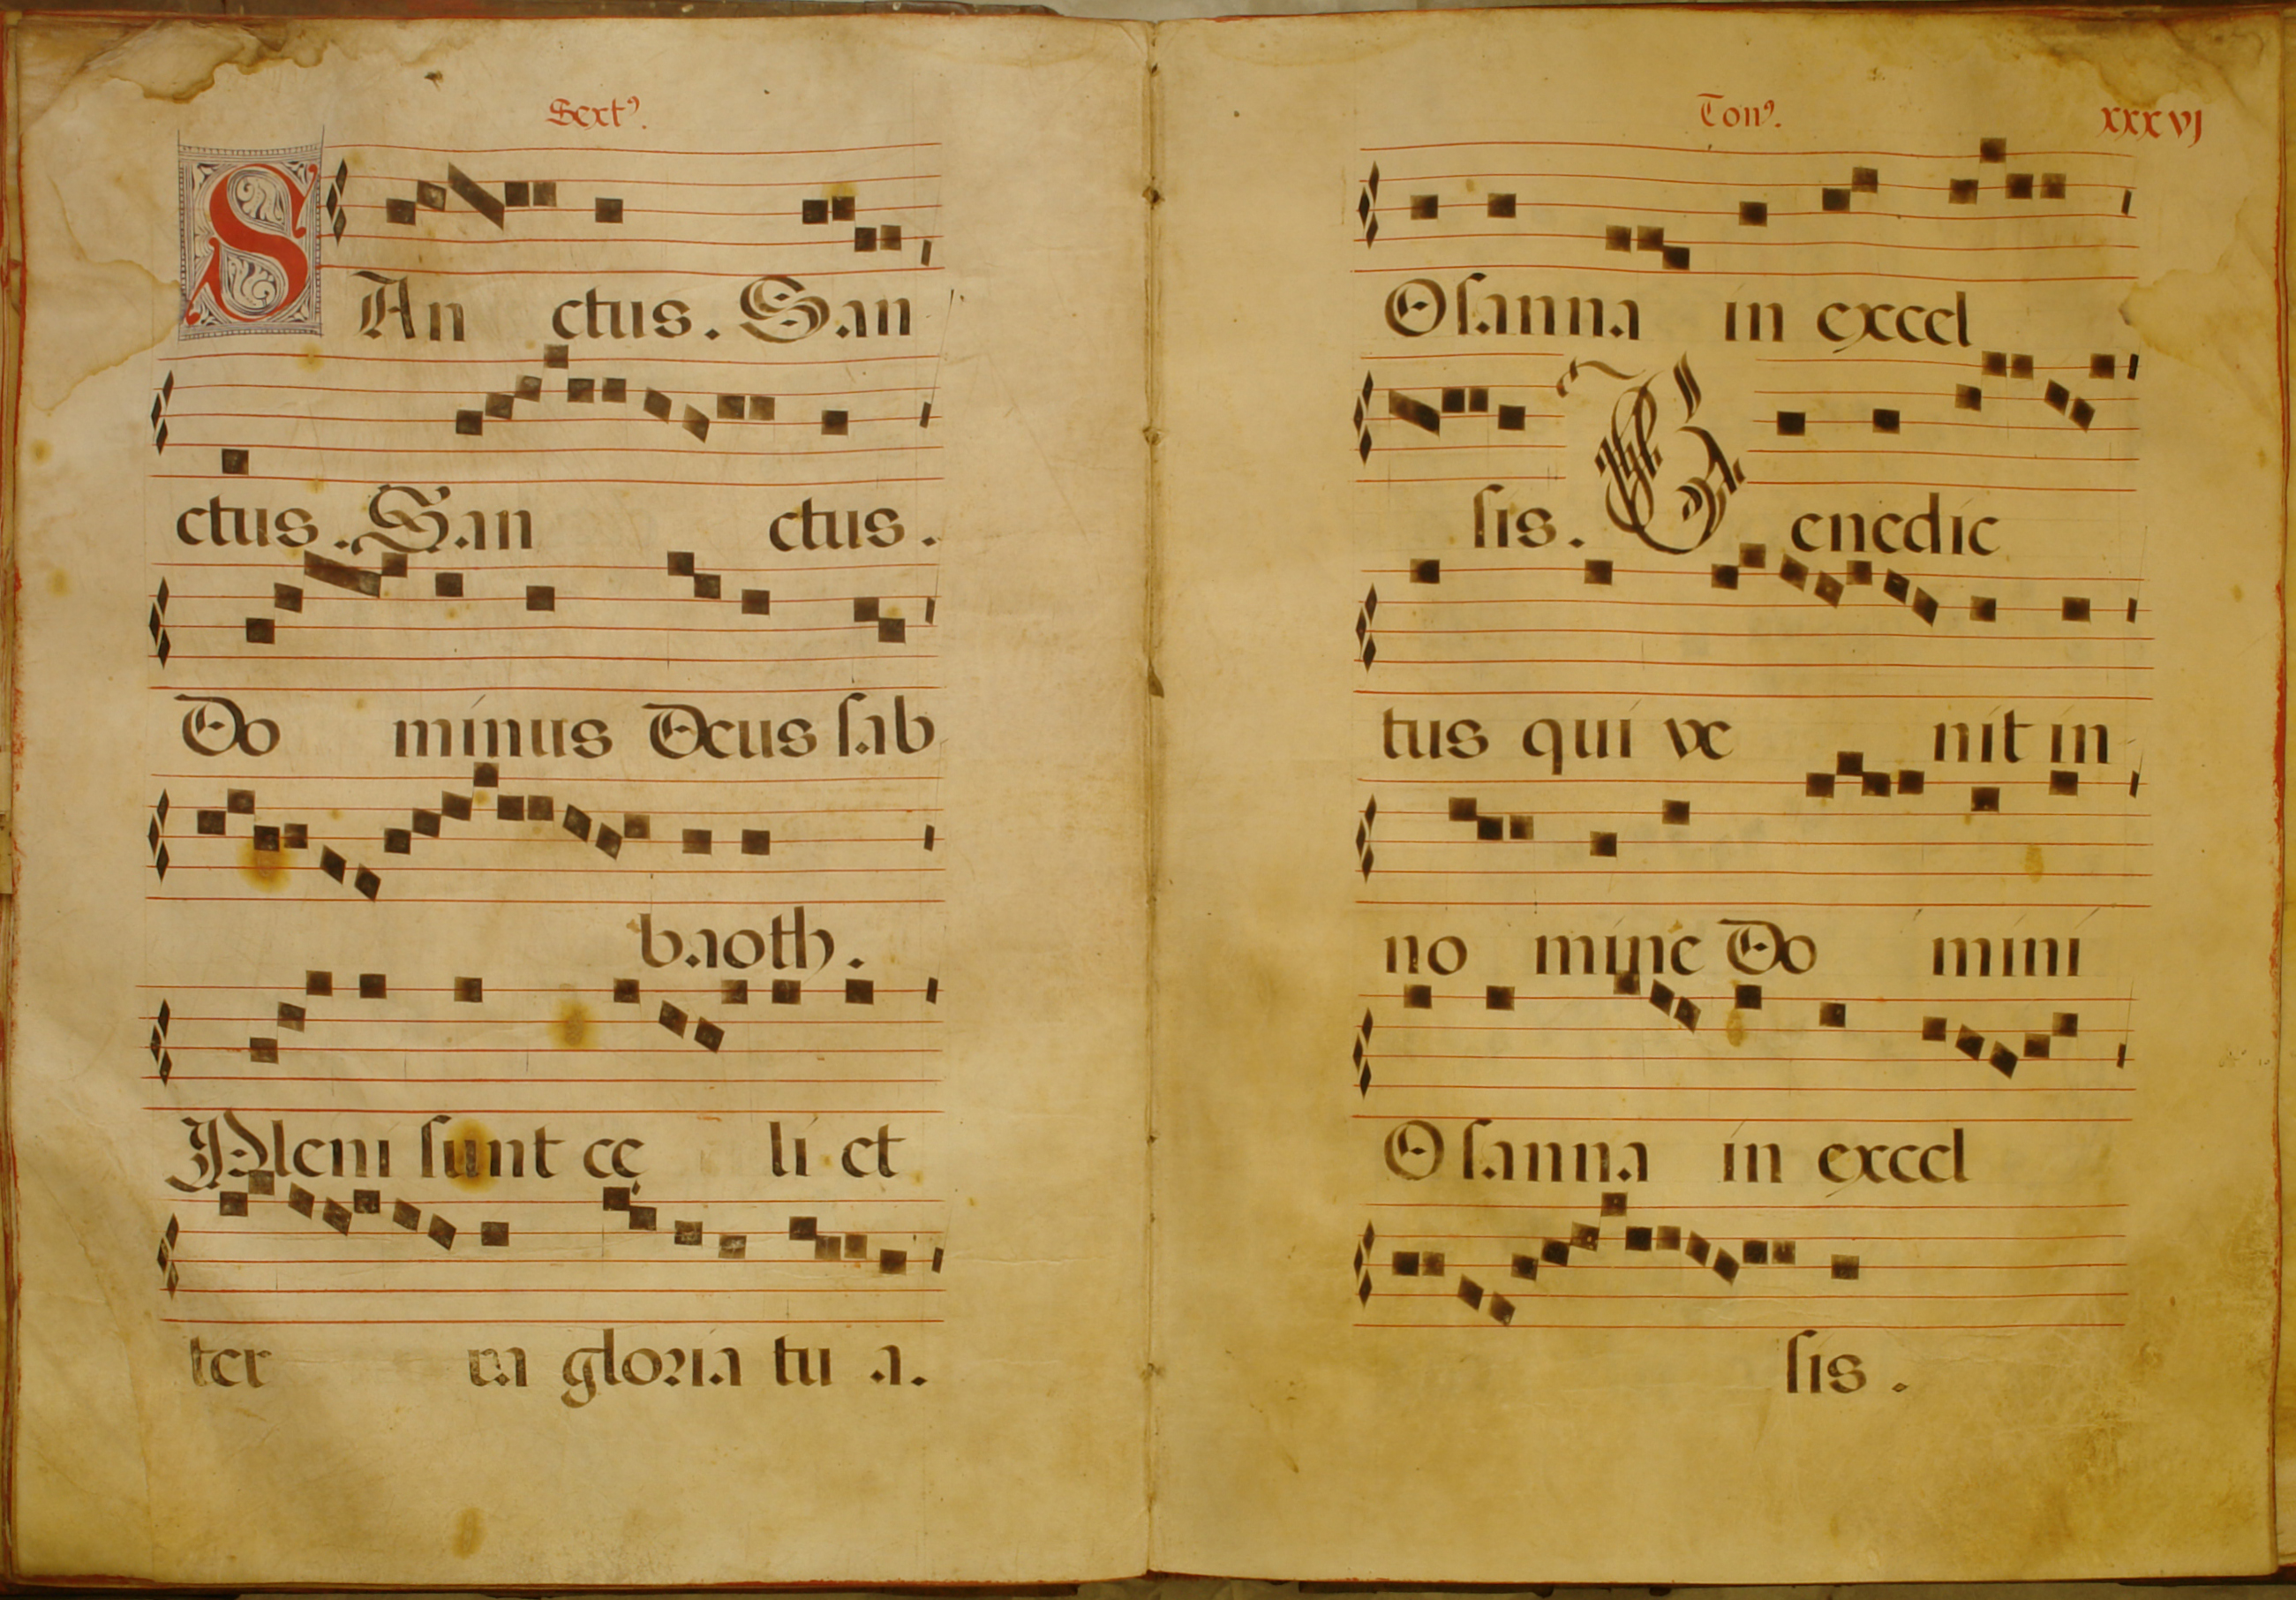 Sextꝰ.
SAn ctus. San
ctus. San ctus.
Do minus Deus ſab
baoth.
Pleni ſunt cę li et
ter ra gloꝛia tu a.
Tonꝰ. xxxvj
Oſanna in excel
ſis. Benedic
tus qui ve nit in
no mine Do mini
Oſanna in excel
ſis.